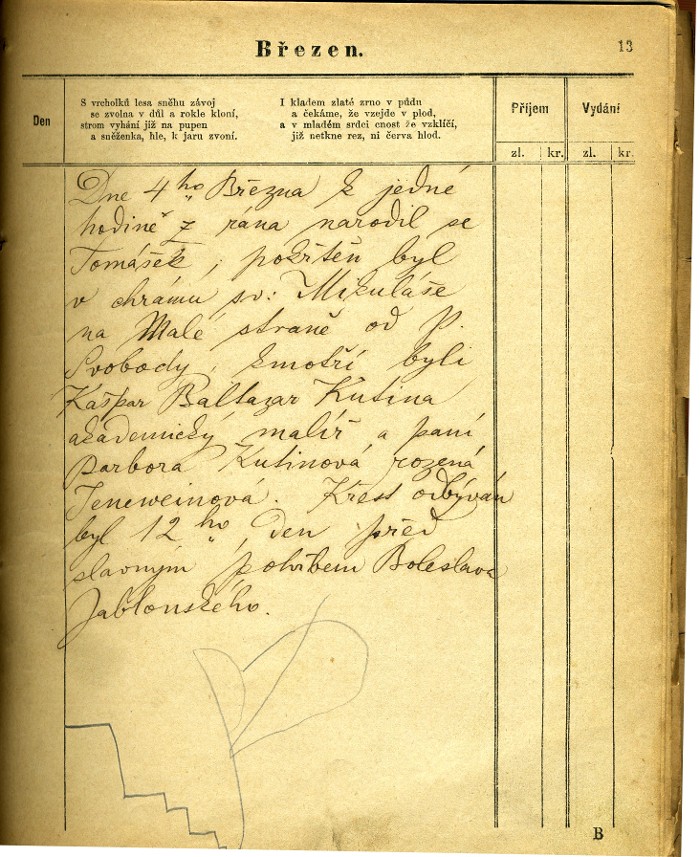 Březen.
13
Den
S vrcholků lesa sněhu závoj
se zvolna v důl a rokle kloní,
strom vyhání již na pupen
a sněženka, hle, k jaru zvoní.
I kladem zlaté zrno v půdu
a čekáme, že vzejde v plod,
a v mladém srdci cnost že vzklíčí,
již netkne rez, ni červa hlod.
Příjem
Vydání
zl.
kr.
zl.
kr.
Dne 4ho Března k jedné
hodině z rána narodil se
Tomášek, pokřtěn byl
v chrámu sv: Mikuláše
na Malé straně od P.
Svobody, kmotří byli
Kašpar Baltazar Kutina
akademický malíř a paní
Barbora Kutinová rozená
Jeneweinová. Křest odbýván
byl 12ho, den před
slavným pohřbem Boleslava
Jablonského.
B